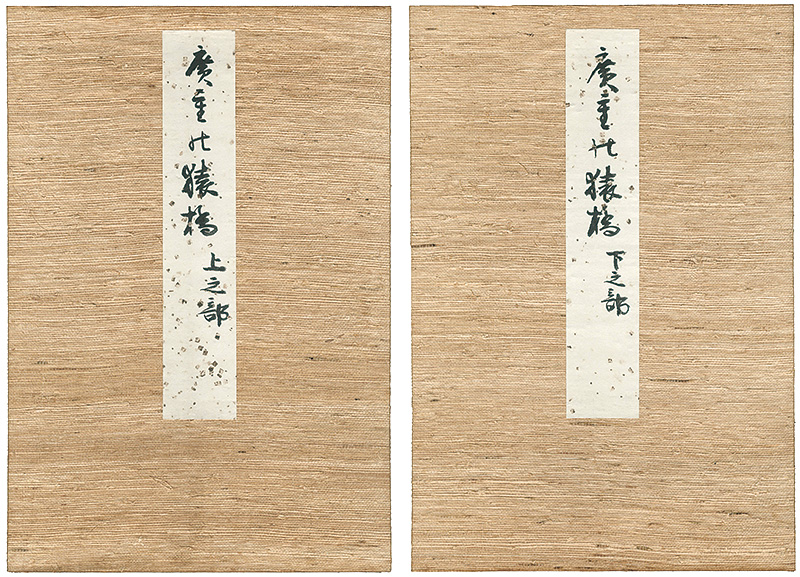 廣重の猿橋 上之部
廣重の猿橋 下之部